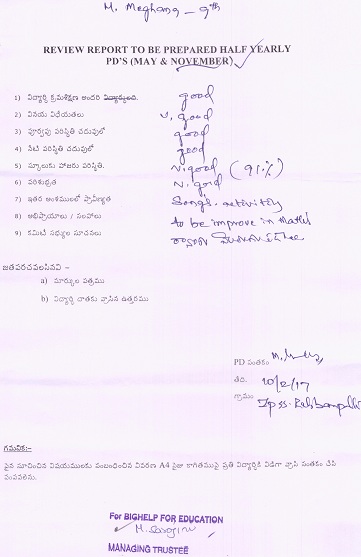 M. Meghana - 9th
REVIEW REPORT TO BE PREPARED HALF YEARLY
PD'S (MAY & NOVEMBER)
1) విద్యార్థి క్రమశిక్షణ అందరి విద్యార్థులది. good
2) వినయ విధేయతలు v. good
3) పూర్వపు పరిస్థితి చదువులో good
4) నేటి పరిస్థితి చదువులో good
5) స్కూలుకు హాజరు పరిస్థితి. v. good (91%)
6) పరిశుభ్రత v. good
7) ఇతర అంశములలో ప్రావీణ్యత Songs. activity
8) అభిప్రాయాలు / సలహాలు to be improve in Maths
9) కమిటీ సభ్యుల సూచనలు
జతపరచవలసినవి –
a) మార్కుల పత్రము
b) విద్యార్థి దాతకు వ్రాసిన ఉత్తరము
PD సంతకం
తేది. 10/2/17
గ్రామం
గమనిక:-
పైన సూచించిన విషయములకు సంబంధించిన వివరణ A4 సైజు కాగితముపై ప్రతి విద్యార్థికి విడిగా వ్రాసి సంతకం చేసి
పంపవలెను.
For BIGHELP FOR EDUCATION
MANAGING TRUSTEE